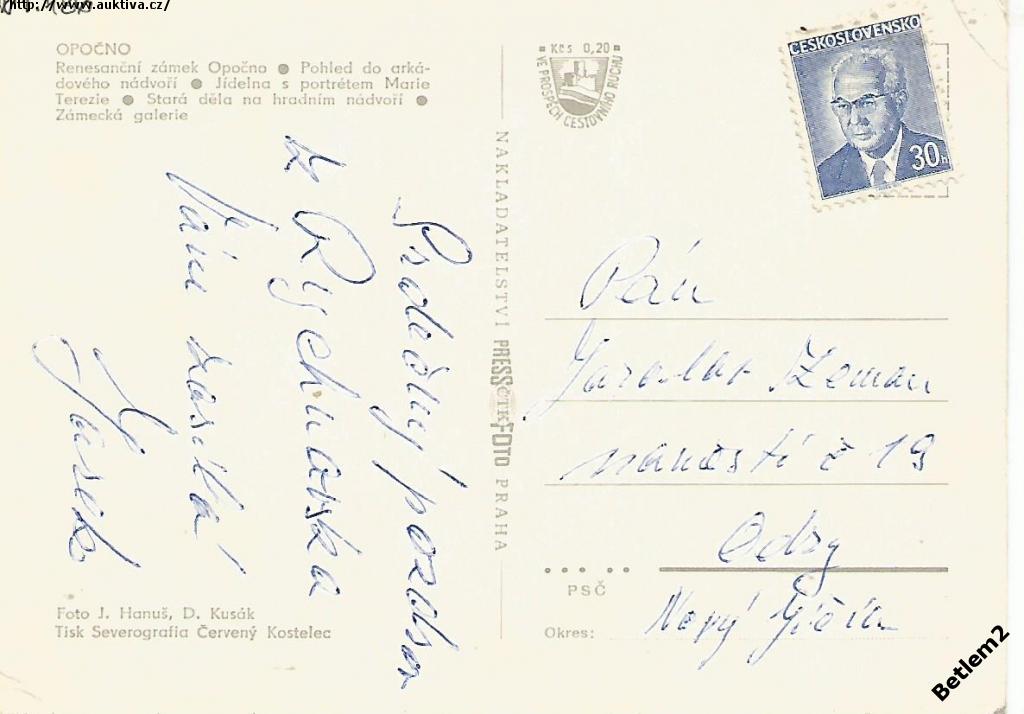 http://www.auktiva.cz/
OPOČNO
Renesanční zámek Opočno ● Pohled do arká-
dového nádvoří ● Jídelna s portrétem Marie
Terezie ● Stará děla na hradním nádvoří ●
Zámecká galerie
Srdečný pozdrav
z Rychnovska
Vám zasílá
Foto J. Hanuš, D. Kusák
Tisk Severografia Červený Kostelec
NAKLADATELSTVÍ PRESSČTKFOTO PRAHA
Kčs 0,20
VE PROSPĚCH CESTOVNÍHO RUCHU
ČESKOSLOVENSKO
30h
Pán
Jaroslav Zeman
náměstí č 19
Odry
PSČ
Okres: Nový Jičín
Betlem2